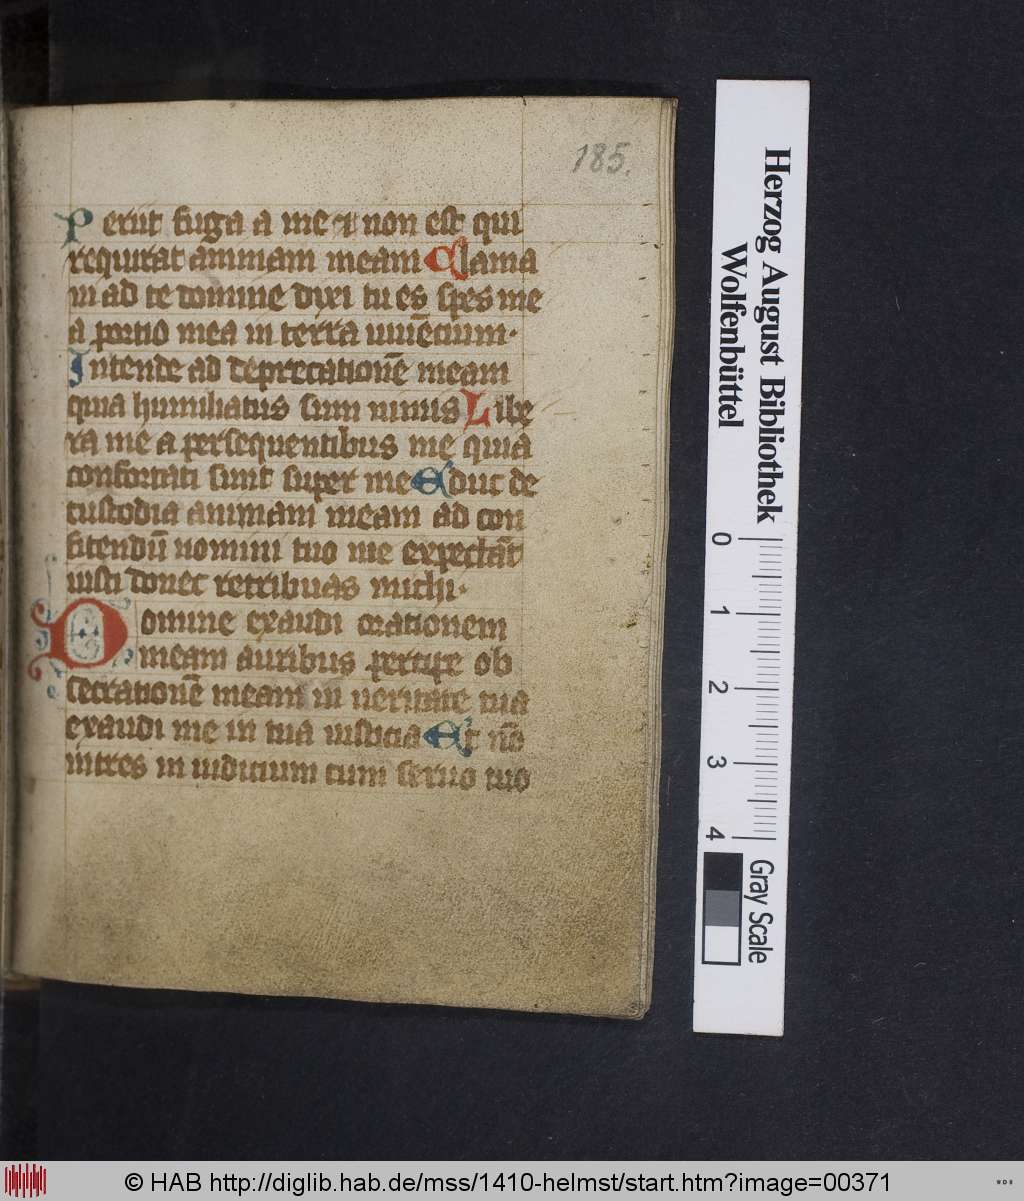 185.
Periit fuga a me ⁊ non est qui
requirat animam meam Clama
ui ad te domine dixi tu es spes me
a portio mea in terra uiuẽcium·
Intende ad deprecationẽ meam
quia humiliatus sum nimis Libe
ra me a persequentibus me quia
confortati sunt super me Educ de
custodia animam meam ad con
fitendũ nomini tuo me expectãt
iusti donec retribuas michi·
Domine exaudi orationem
meam auribus percipe ob
secrationẽ meam in ueritate tua
exaudi me in tua iusticia Et nõ
intres in iudicium cum seruo tuo
Herzog August Bibliothek
Wolfenbüttel
0 1 2 3 4
Gray Scale
© HAB http://diglib.hab.de/mss/1410-helmst/start.htm?image=00371